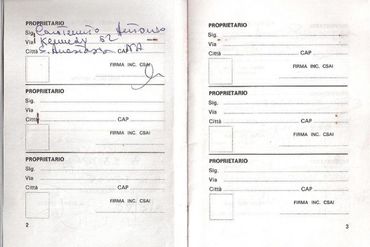 PROPRIETARIO
Sig.
Via Kennedy 52
Città S. Anastasia CAP NA
FIRMA INC. CSAI
PROPRIETARIO
Sig.
Via
Città CAP
FIRMA INC. CSAI
PROPRIETARIO
Sig.
Via
Città CAP
FIRMA INC. CSAI
2
PROPRIETARIO
Sig.
Via
Città CAP
FIRMA INC. CSAI
PROPRIETARIO
Sig.
Via
Città CAP
FIRMA INC. CSAI
PROPRIETARIO
Sig.
Via
Città CAP
FIRMA INC. CSAI
3